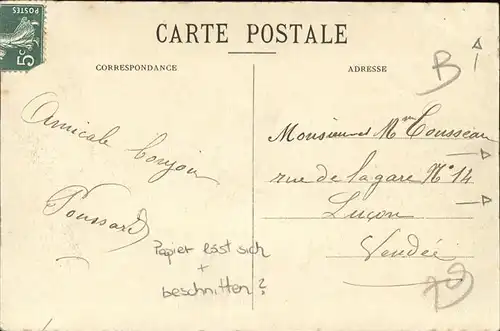 CARTE POSTALE
CORRESPONDANCE
ADRESSE
POSTES
5c
B
Amicale bonjour
Poussard
Monsieur et Mme Cousseau
rue de la gare No 14
Luçon
Vendée
Papier löst sich
+
beschnitten?